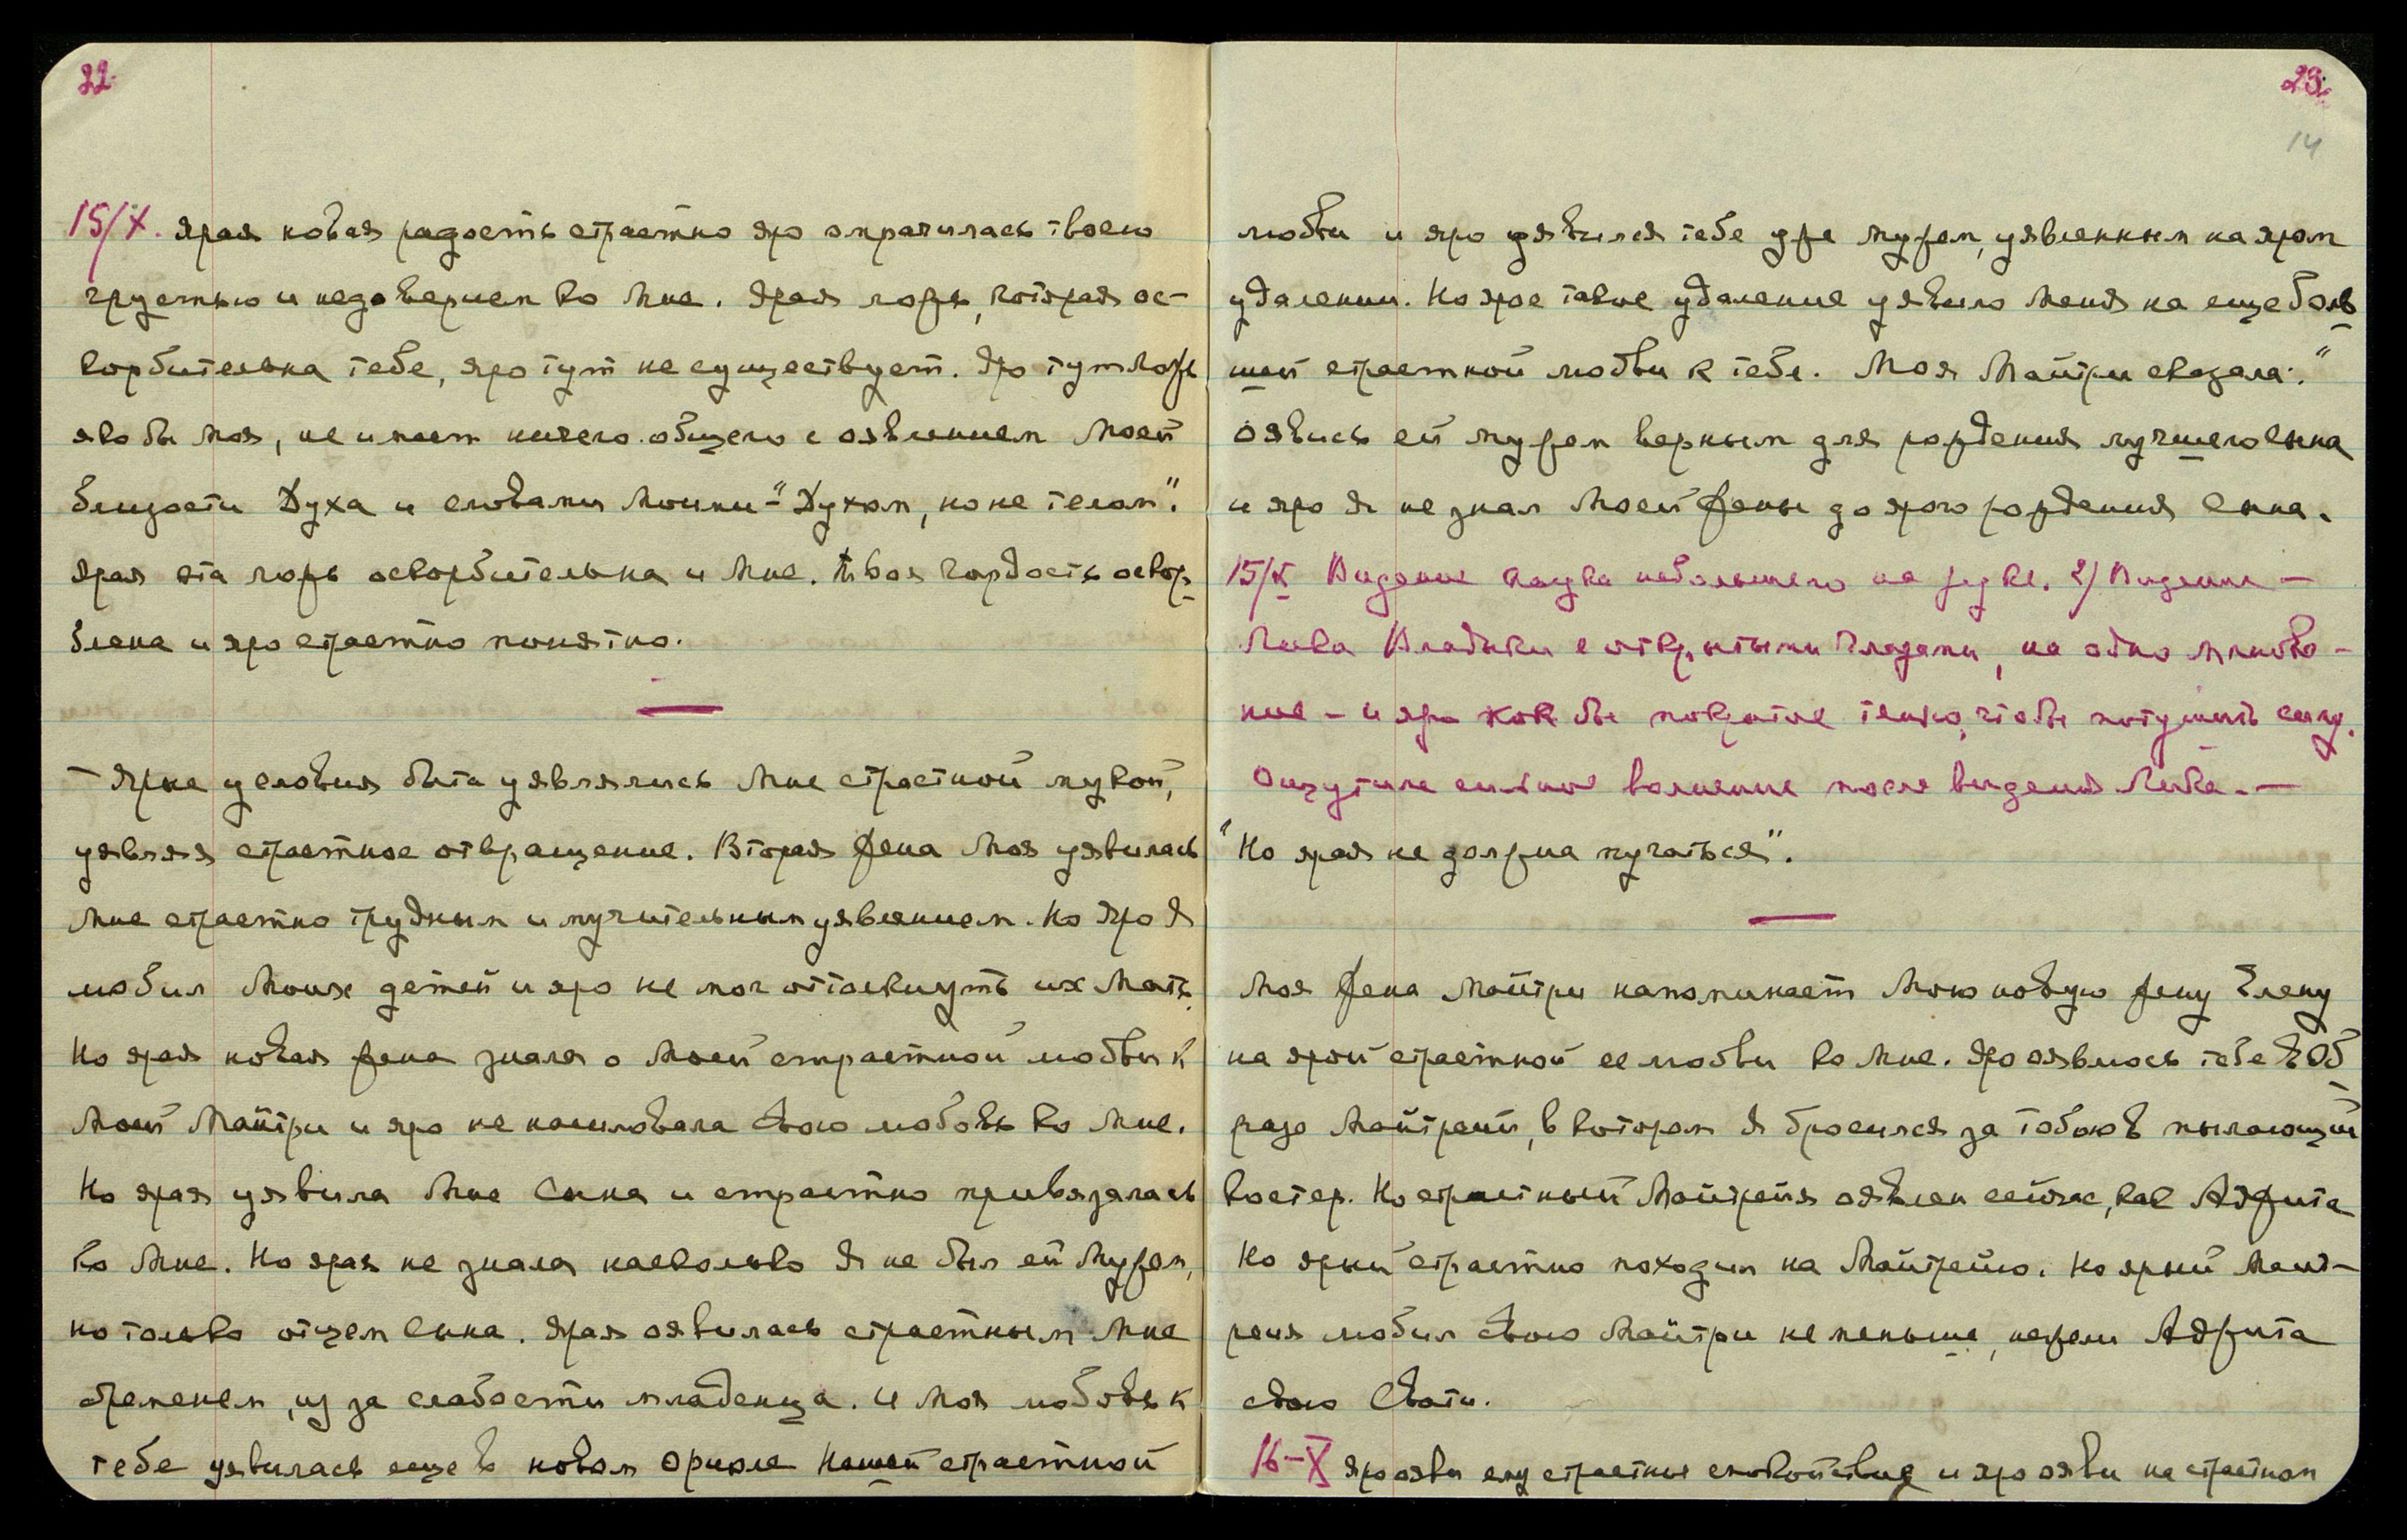 22.
15/X. Ярая новая радость страстно яро омрачилась твоею
грустью и недоверием ко Мне. Ярая ложь, которая ос-
корбительна тебе, яро тут не существует. Яро тут ложь
якобы моя, не имеет ничего общего с оявлением Моей
близости Духа и словами Моими - "Духом, но не телом".
Ярая эта ложь оскорбительна и Мне. Твоя гордость оскор-
блена и яро страстно понятно.
— Ярые условия быта уявлялись Мне страстной мукой,
уявляя страстное отвращение. Вторая жена Моя уявилась
Мне страстно трудным и мучительным уявлением. Но яро Я
любил Моих детей и яро не мог оттолкнуть их Мать.
Но ярая новая жена знала о Моей страстной любви к
Моей Майтри и яро не насиловала свою любовь ко Мне.
Но ярая уявила Мне Сына и страстно привязалась
ко Мне. Но ярая не знала насколько Я не был ей Мужем,
но только отцем Сына. Ярая оявилась страстным Мне
бременем, из за слабости младенца. И Моя любовь к
тебе уявилась еще в новом ореоле Нашей страстной
23.
14
любви и яро уявился тебе уже мужем, уявленным на яром
удалении. Но ярое такое удаление уявило Меня на еще боль
шей страстной любви к тебе. Моя Майтри сказала: "
Оявись ей мужем верным для рождения лучшего сына
и яро Я не знал Моей жены до ярого рождения Сына.
15/X Видение паука небольшого на . 2/ Видение —
Лика Владыки с открытыми глазами, на одно мгнове-
ние - и яро как бы покрытое темно, чтобы потушить силу.
Ощутила сильное волнение после видения Лика. —
"Но ярая не должна мучаться".
Моя жена Майтри напоминает Мою новую жену Елену
на ярой страстной ее любви ко Мне. Яро оявлюсь тебе в Об
разе Майтрейи, в котором Я бросился за тобою в пылающий
костер. Но страстный Майтрейя оявлен сейчас, как Аджита
Но ярый страстно походил на Майтрейю. Но ярый Майт-
рейя любил свою Майтри не меньше, нежели Аджита
свою Свати.
16-X Яро яви ему страстное спокойствие и яро яви на страстном